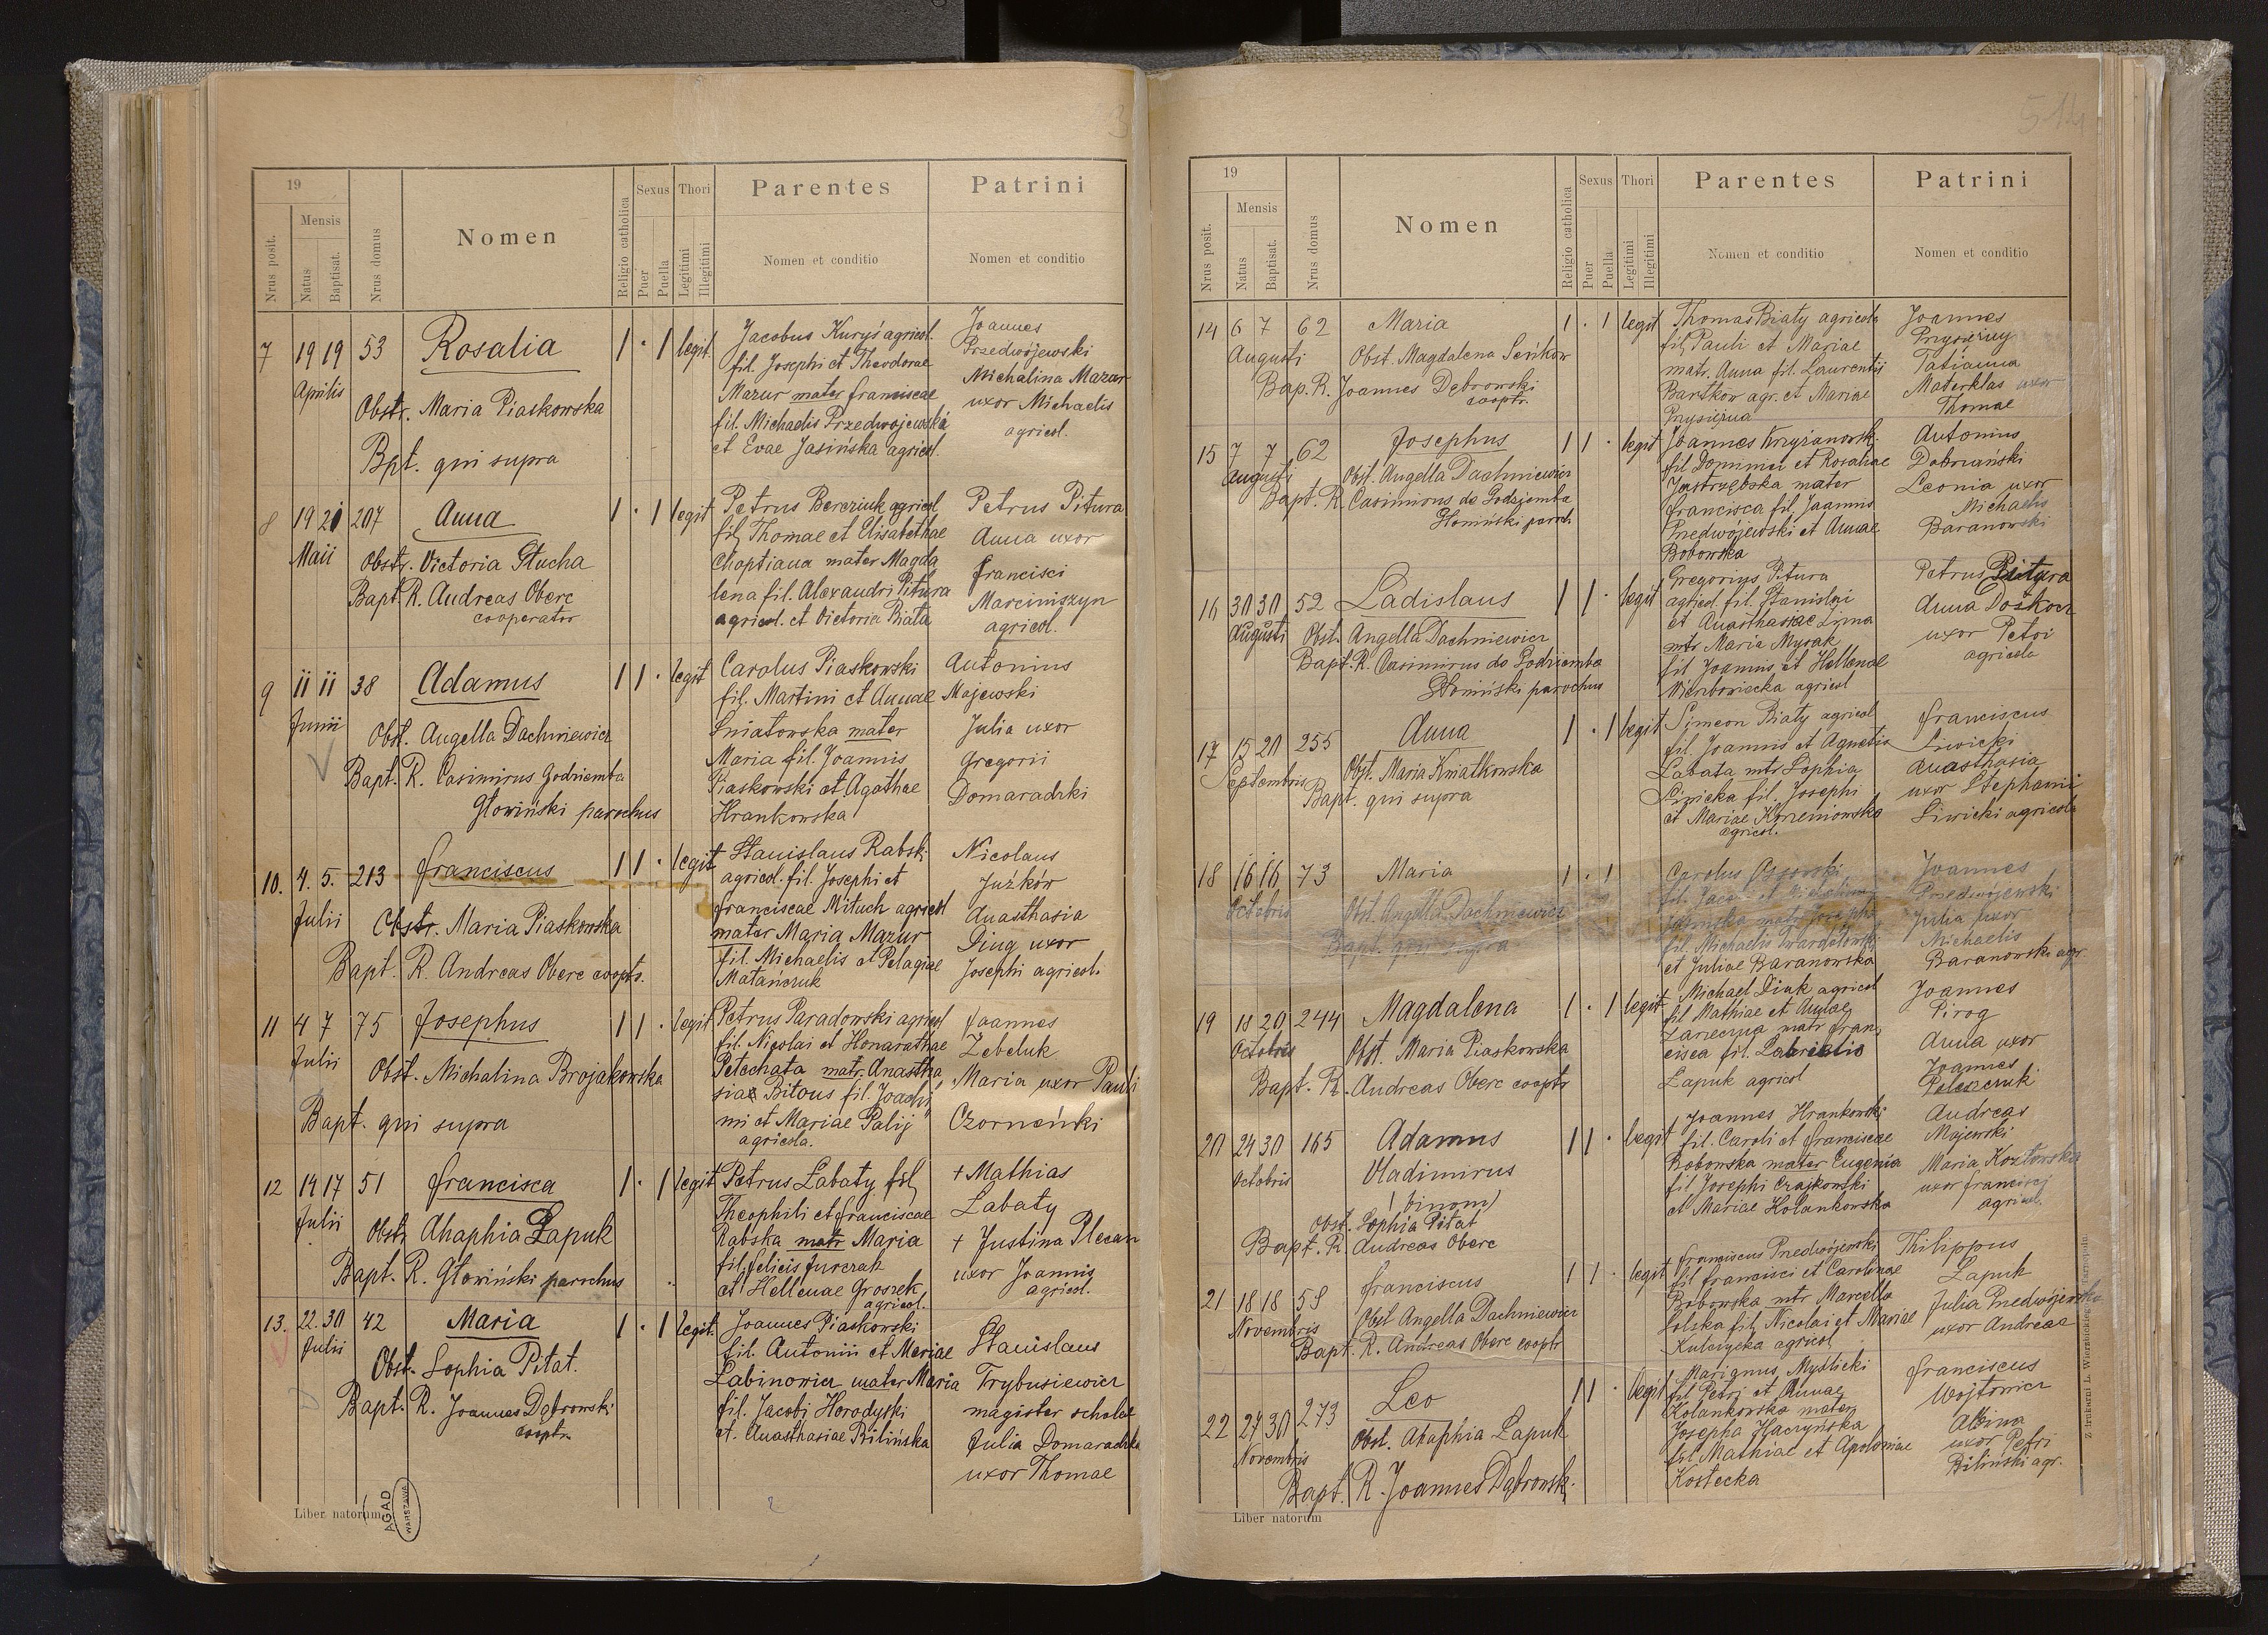 19
Mensis
Nrus posit.
Natus
Baptisat.
Nrus domus
Nomen
Religio catholica
Sexus
Puer
Puella
Thori
Legitimi
Illegitimi
Parentes
Nomen et conditio
Patrini
Nomen et conditio
7 19 19 53 Rosalia 1 · 1 legit.
Aprilis
Obstr. Maria Piaskowska
Bpt. qui supra
Jacobus Kuryś agricol.
fil. Josephi et Theodorae
Mazur mater franciscae
fil. Michaelis Przedwojewska
et Evae Jasińska agricol.
Joannes
Przedwójewski
Michalina Mazur
uxor Michaelis
agricol.
8 19 21 207 Anna 1 · 1 legit
Maii
Obstr. Victoria Głucha
Bapt. R. Andreas Oberc
cooperator
Petrus Bereziuk agricol
fil, Thomae et Elisabethae
Choptiana mater Magda
lena fil. Alexandri Pitura
agricol. et Victoria Biała
Petrus Pitura
Anna uxor
francisci
Marciniszyn
agricol.
9 11 11 38 Adamus 1 1 · legit
Junii
Obst. Angella Dachniewicz
Bapt. R. Casimirus Godziemba
Głowiński parochus
Carolus Piaskowski
fil. Martini et Annae
Śniatowska mater
Maria fil. Joannis
Piaskowski et Agathae
Hrankowska
Antonius
Majewski
Julia uxor
Gregorii
Domaradzki
10. 4. 5. 213 franciscus 1 1 · legit
Julii
Obstr. Maria Piaskowska
Bapt. R. Andreas Oberc coopts.
Stanislaus Rabski
agricol. fil. Josephi et
franciscae Mituch agricol
mater Maria Mazur
fil. Michaelis et Pelagiae
Matańczuk
Nicolaus
Juźków
Anasthasia
Ding uxor
Josephi agricol.
11 4 7 75 Josephus 1 1 · legit
Julii
Obst. Michalina Brojakowska
Bapt. qui supra
Petrus Paradowski agricol
fil. Nicolai et Honarathae
Petechata matr. Anastha
siae Bitous fil. Joachi
mi et Mariae Palij
agricola.
Joannes
Zebeluk
Maria uxor Pauli
Czorneńki
12 14 17 51 francisca 1 · 1 legit
Julii
Obstr Ahaphia Łapuk
Bapt. R. Głowiński parochus
Petrus Łabaty fil,
Theophili et franciscae
Rabska matr Maria
fil, felicis Jurczak
et Hellenae Groszek
agricol.
+ Mathias
Łabaty
+ Justina Plecan
uxor Joannis
agricol.
13. 22. 30 42 Maria 1 · 1 legit.
Julii
Obst. Sophia Pitat.
Bapt. R. Joannes Dąbrowski
cooptr.
Joannes Piaskowski
fil. Antonii et Mariae
Łabinowicz mater Maria
fil. Jacobi Horodyski
et. Anasthasiae Bilińska
Stanislaus
Trybusiewicz
magister scholae
Julia Domaradzka
uxor Thomae
Liber natorum
AGAD
WARSZAWA
514
19
Mensis
Nrus posit.
Natus
Baptisat.
Nrus domus
Nomen
Religio catholica
Sexus
Puer
Puella
Thori
Legitimi
Illegitimi
Parentes
Nomen et conditio
Patrini
Nomen et conditio
14 6 7 62 Maria 1 · 1 legit
Augusti
Obst. Magdalena Seńkow
Bap. R. Joannes Dąbrowski
cooptr.
Thomas Biały agricola
fil, Pauli et Mariae
matr. Anna fil. Laurentii
Bartków agr. et Mariae
Prysiężna
Joannes
Prysiężny
Tatianna
Materklas uxor
Thomae
15 7 7 62 Josephus 1 1 · legit
Augusti
Obst. Angella Dachniewicz
Bapt. R. Casimirus de Godziemba
Głowiński paroch
Joannes Krzyżanowski
fil Dominici et Rosaliae
Jastrzębska mater
francisca fil, Joannis
Przedwójewski et Annae
Bobowska
Antonius
Dobrucński
Leonia uxor
Michaelis
Baranowski
16 30 30 52 Ladislaus 1 1 · legit
Augusti
Obst. Angella Dachniewicz
Bapt. R. Casimirus de Godziemba
Głowiński parochus
Gregorius Pitura
agricol. fil. Stanislai
et Anasthasiae Zima
mtr Maria Mysak
fil Joannis et Hellenae
Wierbowiecka agricol
Petrus Pitura
Anna Doškocz
uxor Petri
agricola
17 15 20 255 Anna 1 · 1 legit
Septembris
Obst. Maria Kwiatkowska
Bapt. qui supra
Simeon Biały agricol
fil. Joannis et Agnetis
Łabata mtr Sophia
Siwicka fil. Josephi
et Mariae Korzeniowska
agricol.
franciscus
Siwicki
Anasthasia
uxor Stephanii
Siwicki agricola
18 16 16 73 Maria 1 · 1
Octobris
Obst. Angella Dachniewicz
Bapt. qui supra
Carolus
fil. Jacobi et Michalinae
Jasińska matr Josepha
fil. Michaelis Twardowski
et Juliae Baranowska
Joannes
Przedwójewski
Julia uxor
Michaelis
Baranowski agr.
19 18 20 244 Magdalena 1 · 1 legit
Octobris
Obst. Maria Piaskowska
Bapt. R. Andreas Oberc cooptr
Michael Diuk agricol
fil Mathiae et Annae
Zarieczna matr fran
cisca fil. Gabrielis
Łapuk agricol
Joannes
Pirog
Anna uxor
Joannes
Peleszczuk
20 24 30 165 Adamus 1 1 · legit
Octobris
Vladimirus
(binom)
Obst. Sophia Pitat
Bapt. R. Andreas Oberc
Joannes Hrankowski
fil. Caroli et franciscae
Bobowska mater Eugenia
fil Josephi Czajkowski
et Mariae Holankowska
Andreas
Majewski
Maria Kozłowska
uxor francisci
agricol.
21 18 18 58 franciscus 1 1 · legit
Novembris
Obst Angella Dachniewicz
Bapt. R. Andreas Oberc cooptr
franciscus Przedwójewski
fil francisci et Carolinae
Bobowska mtr Marcella
Solska fil, Nicolai et Mariae
Kulczycka agricol
Thilippus
Łapuk
Julia Przedwójewska
uxor Andreae
22 27 30 273 Leo 1 1 · legit
Novembris
Obst. Ahaphia Łapuk
Bapt. R. Joannes Dąbrowski.
Marianus Myślicki
fil Petri et Annae
Kolankowska mater
Josepha Haczyńska
fil, Mathiae et Apoloniae
Kostecka
franciscus
Wojtowicz
Albina
uxor Petri
Biliński agr.
Liber natorum
Z drukarni L. Wierzbickiego Tarnopolu